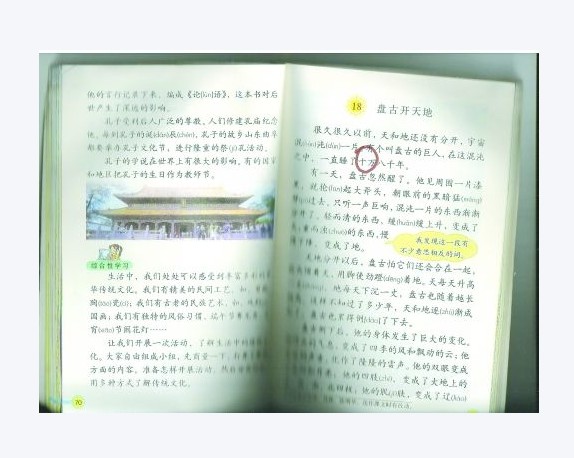 他的言行记录下来,编成《论[lún]语》,这本书对后
世产生了深远的影响。
孔子受到后人广泛的尊敬,人们修建孔庙纪念
他。每到孔子的诞(dàn)辰(chén),孔子的故乡山东曲阜
都要举办孔子文化节,进行隆重的祭(jì)孔活动。
孔子的学说在世界上有很大的影响,有的国家
和地区把孔子的生日作为教师节。
综合性学习
生活中,我们处处可以感受到丰富多彩的
华传统文化。我们有精美的民间工艺,如,
陶(táo)瓷(cí);我们有古老的民族艺术,如,
国画;我们有独特的风俗习惯,
宵(xiāo)节闹花灯……
让我们开展一次活动,了解生活中的
化。大家自由组成小组,先商量一下,
方面的内容,准备怎样开展活动,然后
用多种方式了解传统文化。
70
18 盘古开天地
很久很久以前,天和地还没有分开,宇宙
混(hùn)沌(dùn)一片。有个叫盘古的巨人,在这混沌
之中,一直睡了十万八千年。
有一天,盘古忽然醒了。他见周围一片漆
黑,就抡(lūn)起大斧头,朝眼前的黑暗猛(měng)
过去。只听一声巨响,混沌一片的东西渐渐
分开了。轻而清的东西,缓(huǎn)缓上升,变成了
天;重而浊(zhuó)的东西,慢
慢下降,变成了地。
我发现这一段有
不少意思相反的词。
天地分开以后,盘古怕它们还会合在一起,
用脚使劲蹬(dēng)着地。天每天升高
一丈,地每天下沉一丈,盘古也随着越长
越高。这样不知过了多少年,天和地逐(zhú)渐成
盘古也累得倒(dǎo)了下去。
盘古倒下后,他的身体发生了巨大的变化。
变成了四季的风和飘动的云;他
化作了隆隆的雷声。他的双眼变成
他的四肢(zhī),变成了大地上的
他的肌(jī)肤,变成了辽(liáo)